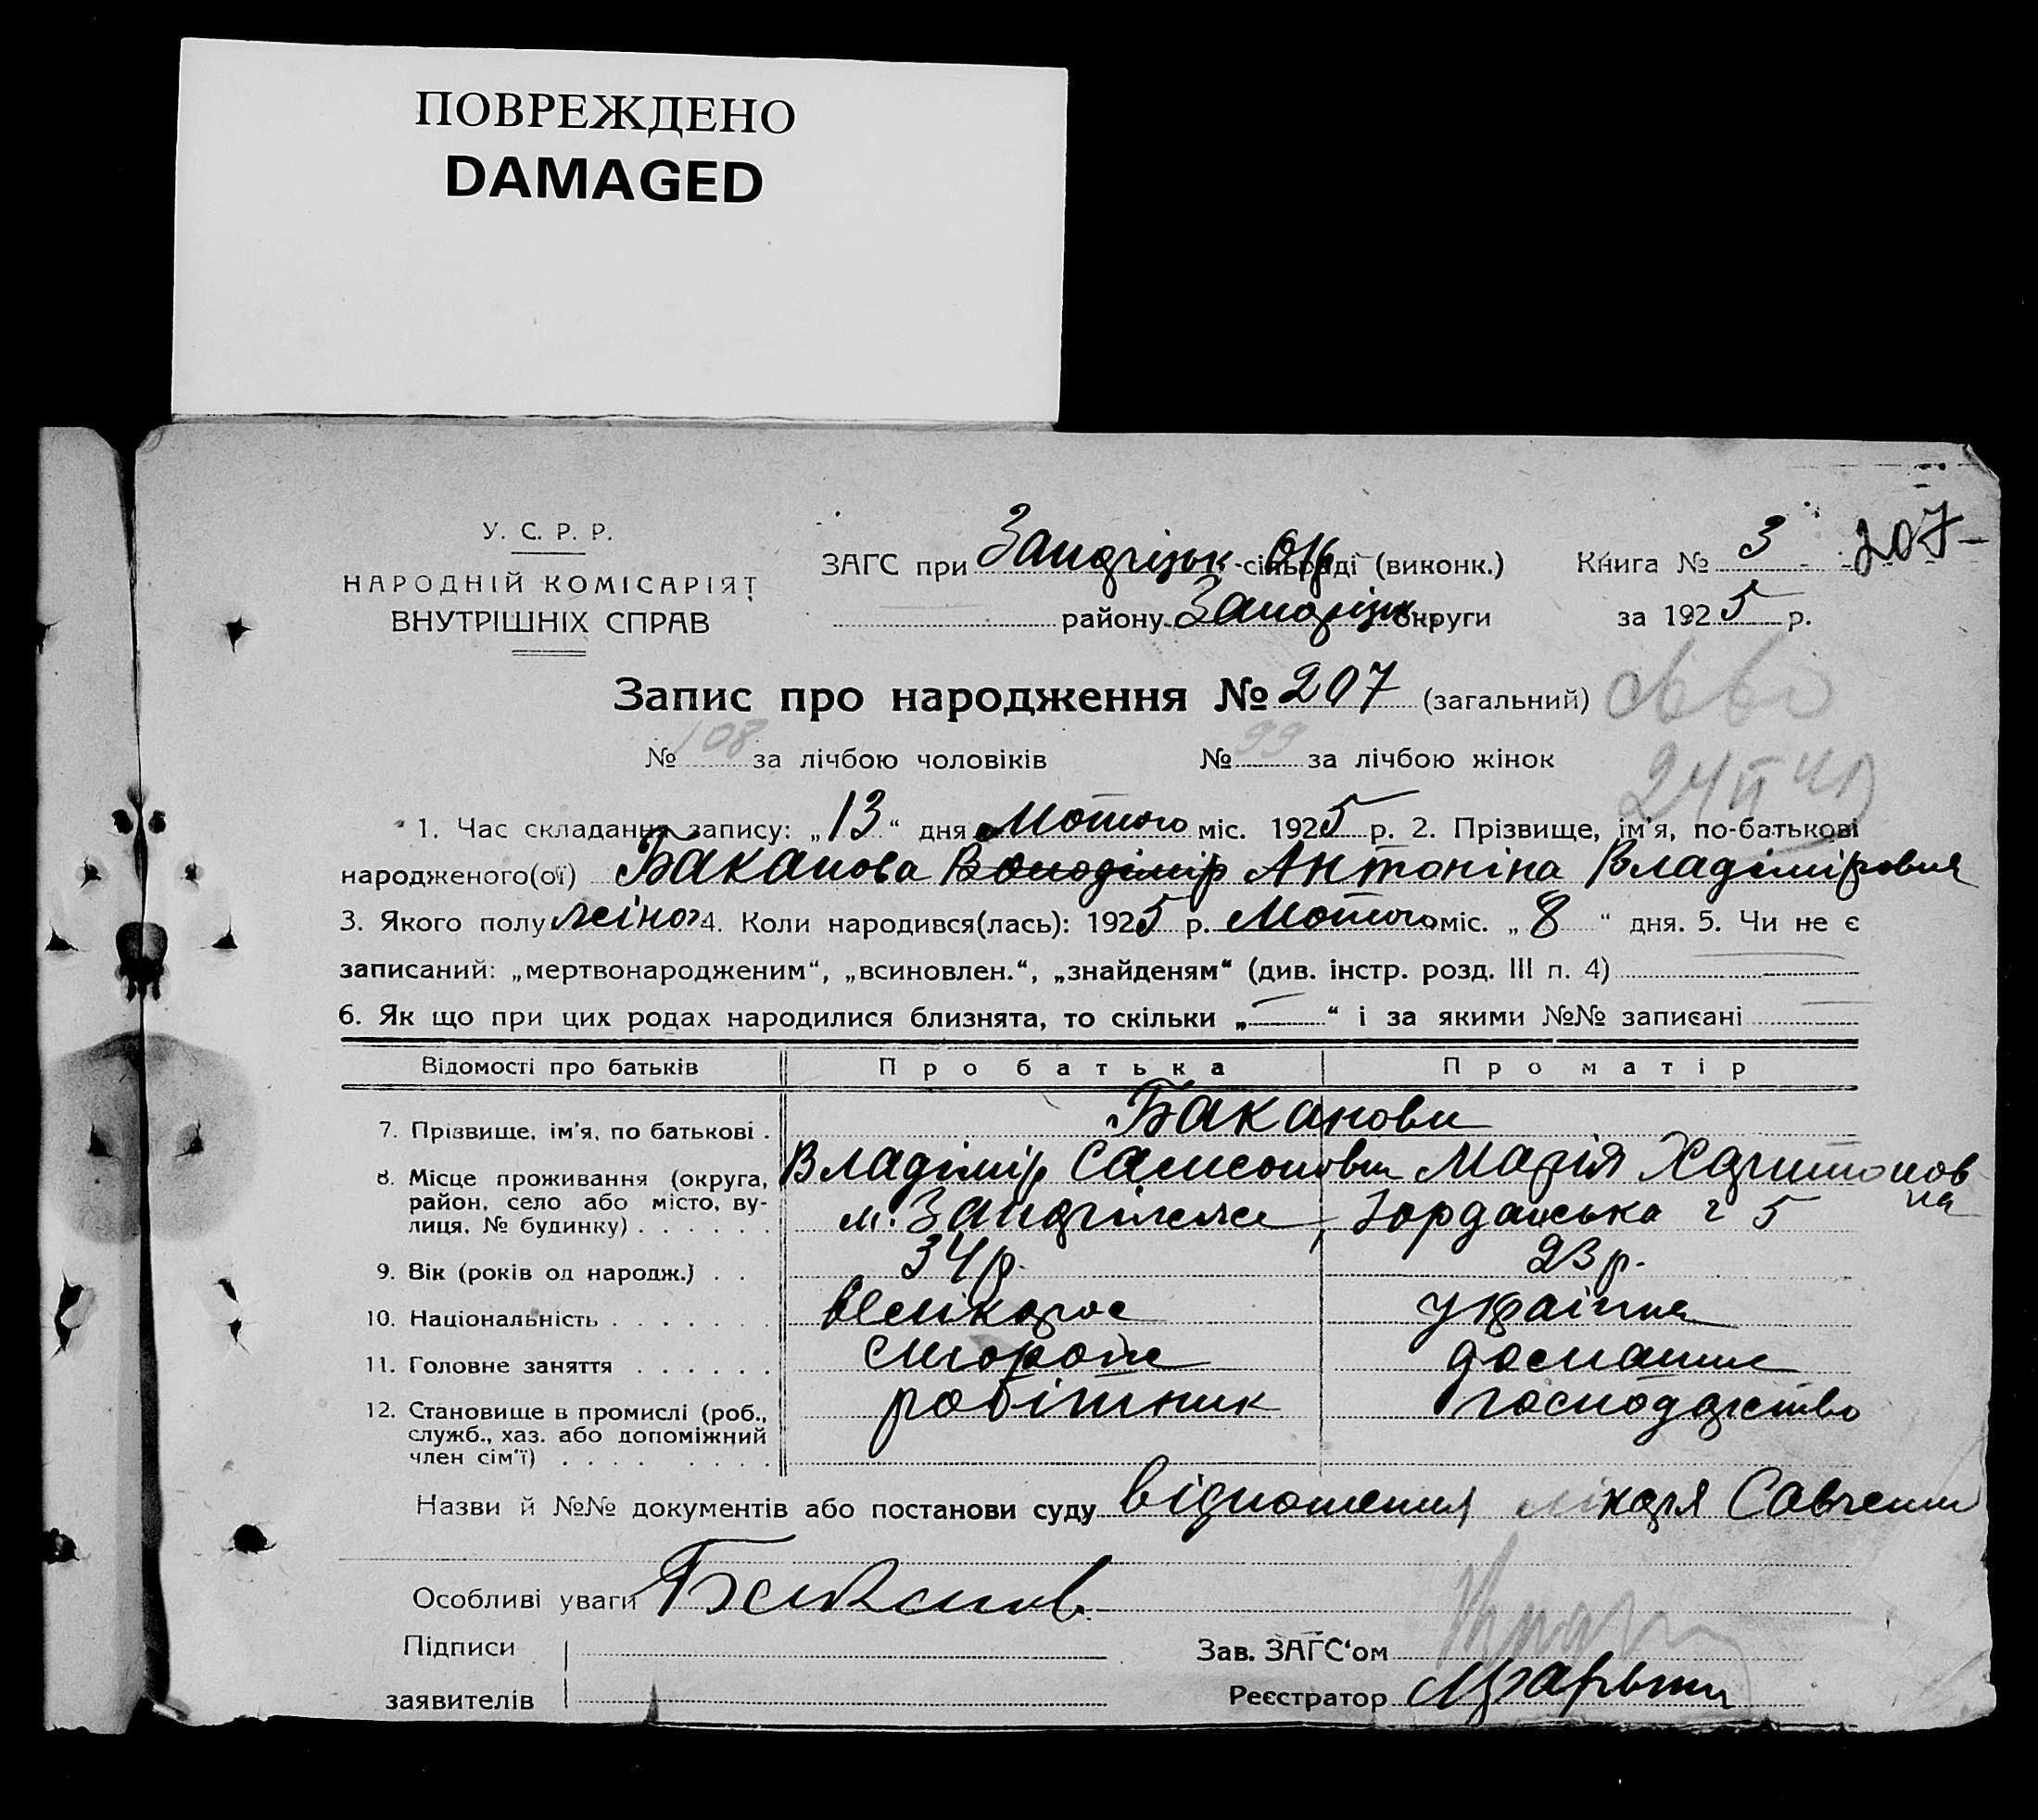 ПОВРЕЖДЕНО
DAMAGED
У. С. Р. Р.
НАРОДНІЙ КОМІСАРІЯТ
ВНУТРІШНІХ СПРАВ
ЗАГС при Запоріцьк. сільраді (виконк.)
району Запоріцьк. округи
Книга № 3
207
за 1925 р.
Запис про народження № 207 (загальний)
№ 108 за лічбою чоловіків № 99 за лічбою жінок
24 II 41
1. Час складання запису: „13“ дня Лютого міс. 1925 р. 2. Прізвище, ім'я, по-батькові
народженого(ої) Баканова Володімір Антоніна Владіміровна
3. Якого полу жіноч 4. Коли народився(лась): 1925 р. Лютого міс. „8“ дня. 5. Чи не є
записаний: „мертвонародженим“, „всиновлен.“, „знайденям“ (див. інстр. розд. III п. 4)
6. Як що при цих родах народилися близнята, то скільки „—“ і за якими №№ записані
Відомості про батьків Про батька Про матір
7. Прізвище, ім'я, по батькові . Баканови
Владімір Самсонович Марія Харитоновна
8. Місце проживання (округа, район, село або місто, вулиця, № будинку) . . . . . . м. Запоріжже, Іорданська 5
9. Вік (років од народж.) . . 34 р. 23 р.
10. Національність . . . . . . . великорос українка
11. Головне заняття . . . . . . домашнє
12. Становище в промислі (роб., служб., хаз. або допоміжний член сім'ї) . . . . . . . . робітник господарство
Назви й №№ документів або постанови суду відношення лікаря Савченки
Особливі уваги Баканов
Підписи
заявителів
Зав. ЗАГС'ом
Реєстратор